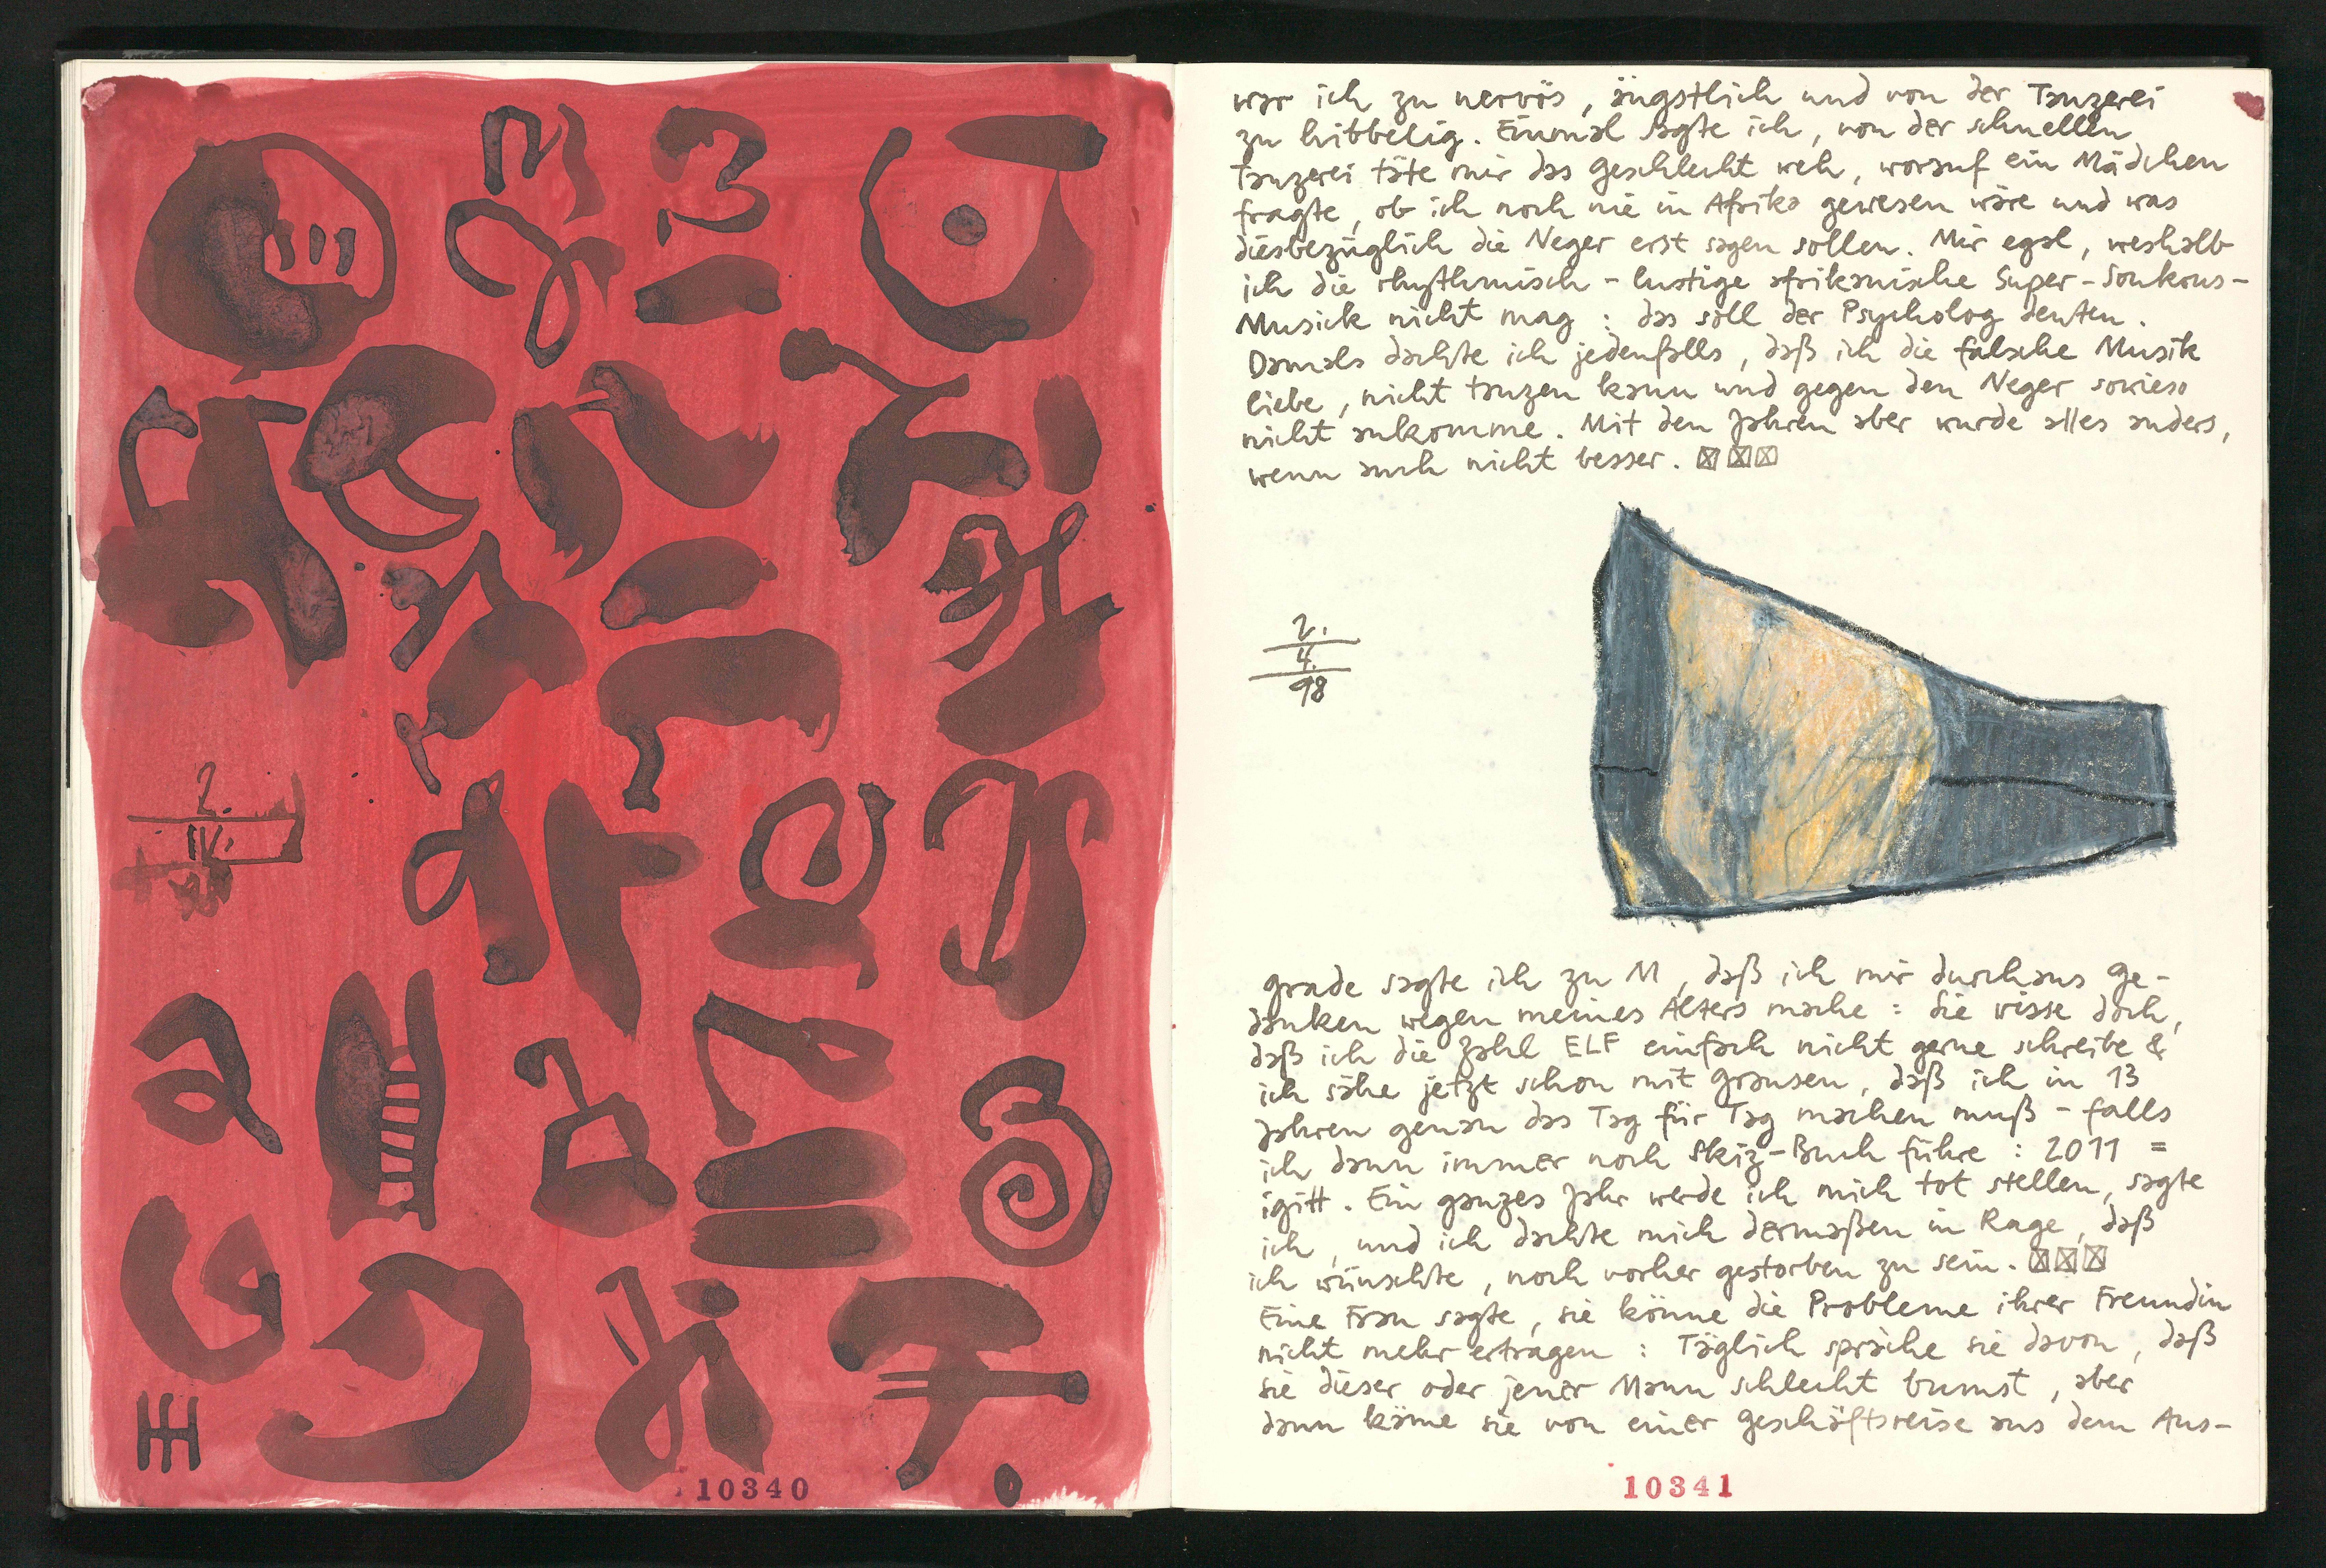 2.
IV.
10340
war ich zu nervös, ängstlich und von der Tanzerei
zu hibbelig. Einmal sagte ich, von der schnellen
Tanzerei täte mir das Geschlecht weh, worauf ein Mädchen
fragte, ob ich noch nie in Afrika gewesen wäre und was
diesbezüglich die Neger erst sagen sollen. Mir egal, weshalb
ich die rhythmisch-lustige afrikanische Super-Soukous-
Musick nicht mag: das soll der Psycholog deuten.
Damals dachte ich jedenfalls, daß ich die falsche Musik
liebe, nicht tanzen kann und gegen den Neger sowieso
nicht ankomme. Mit den Jahren aber wurde alles anders,
wenn auch nicht besser.
2.
4.
98
grade sagte ich zu M, daß ich mir durchaus Ge-
danken wegen meines Alters mache: Sie wisse doch,
daß ich die Zahl ELF einfach nicht gerne schreibe &
ich sähe jetzt schon mit Grausen, daß ich in 13
Jahren genau das Tag für Tag machen muß - falls
ich dann immer noch Skiz-Buch führe: 2011 =
igitt. Ein ganzes Jahr werde ich mich tot stellen, sagte
ich, und ich dachte mich dermaßen in Rage, daß
ich wünschte, noch vorher gestorben zu sein.
Eine Frau sagte, sie könne die Probleme ihrer Freundin
nicht mehr ertragen: Täglich spräche sie davon, daß
sie dieser oder jener Mann schlecht bumst, aber
dann käme sie von einer Geschäftsreise aus dem Aus-
10341